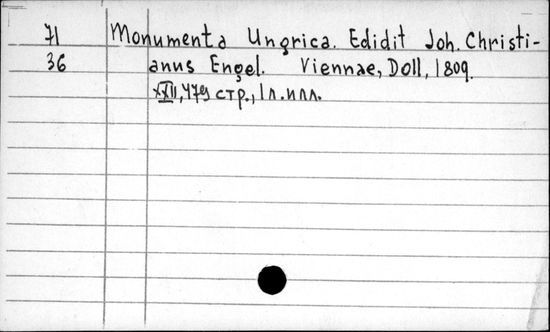 71 Monumenta Ungrica. Edidit Joh. Christi-
36 anus Engel. Viennae, Doll, 1809.
XXII, 479 стр., 1 л. илл.